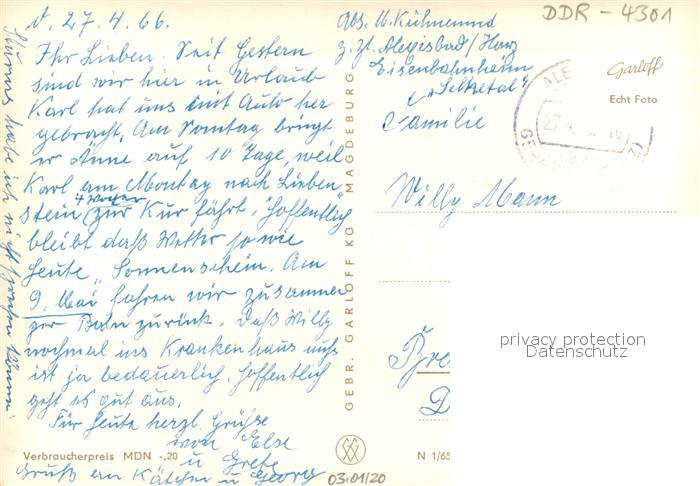 d. 27.4.66.
Ihr Lieben. Seit Gestern
sind wir hier in Urlaub
Karl hat uns mit Auto her
gebracht. Am Sonntag bringt
er Änne auf 10 Tage, weil
Karl am Montag nach Lieben
stein 4 Wochen zur Kur fährt. Hoffentlich
bleibt daß Wetter so wie
Heute "Sonnenschein. Am
9. Mai fahren wir zusammen
per Bahn zurück. Daß Willy
nochmal ins Krankenhaus muß
ist ja bedauerlich. Hoffentlich
geht es gut aus.
Für Heute herzl. Grüße
von Else
u Grete
Gruß an Käthen u Georg
habe ich nicht
Verbraucherpreis MDN -,20
GEBR. GARLOFF KG MAGDEBURG
Abs. U. Kühnemund
z. Zt. Alexisbad / Harz
Eisenbahnheim
"Selketal"
Familie
Willy Mann
DDR - 4301
Garloff
Echt Foto
privacy protection
Datenschutz
N 1/65
03.01/20